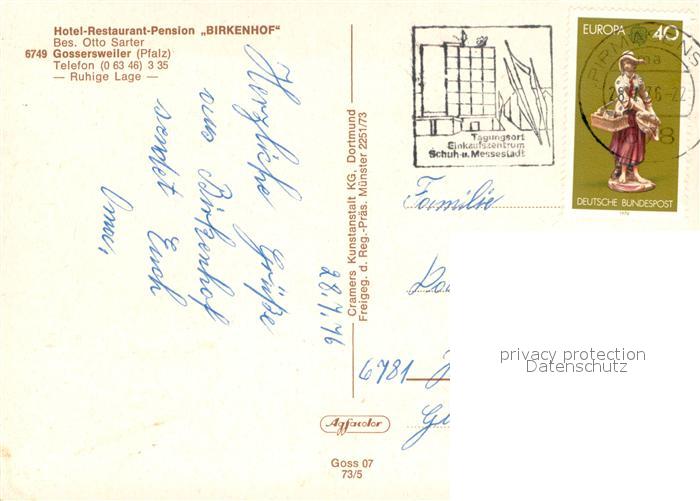 Hotel-Restaurant-Pension „BIRKENHOF"
Bes. Otto Sarter
6749 Gossersweiler (Pfalz)
Telefon (0 63 46) 3 35
— Ruhige Lage —
Herzliche Grüße
aus Birkenhof
sendet Euch
Oma,
28.7.76
Cramers Kunstanstalt KG. Dortmund
Freigeg. d. Reg.-Präs. Münster 2251/73
Agfacolor
Goss 07
73/5
Tagungsort
Einkaufszentrum
Schuh-u. Messestadt
EUROPA 40
DEUTSCHE BUNDESPOST
1976
PIRMASENS
Familie
6781
privacy protection
Datenschutz